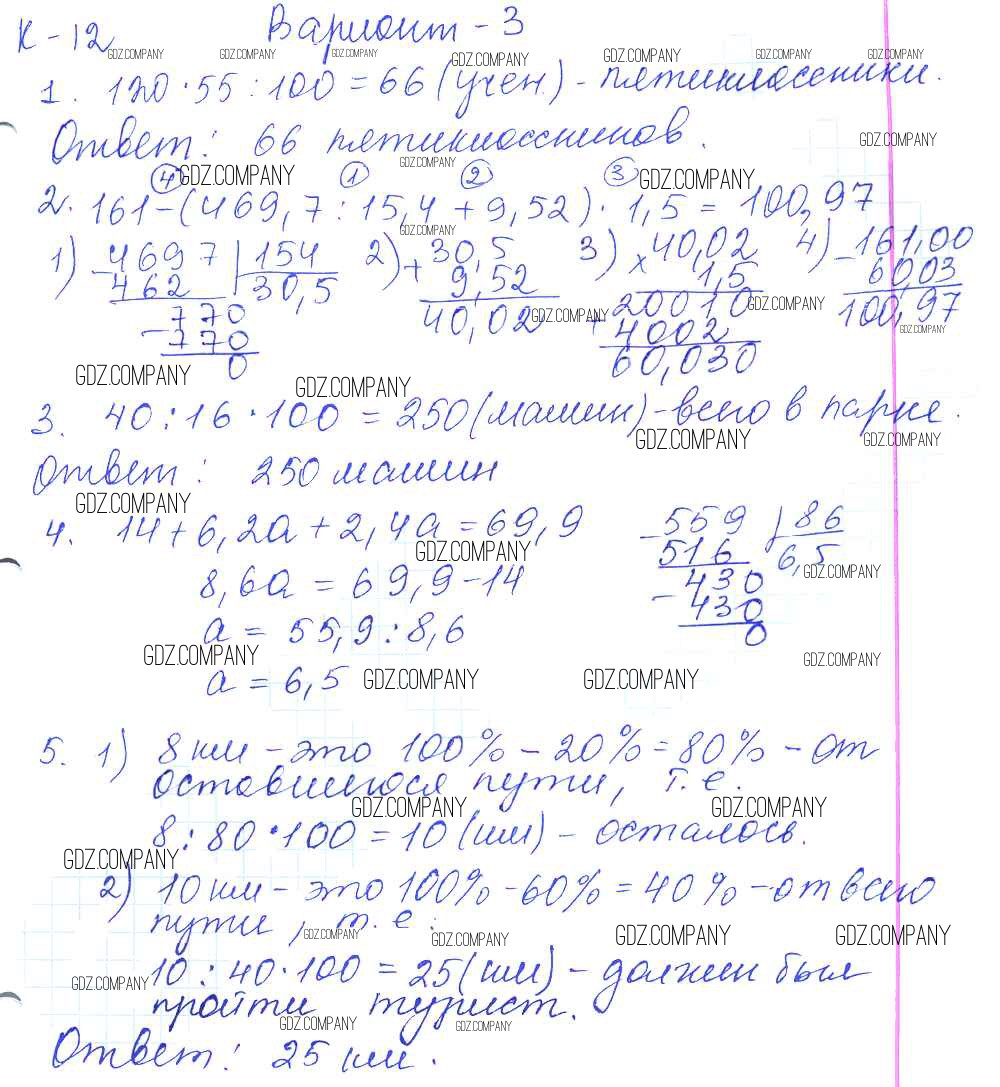 К - 12 Вариант - 3
1. 120 · 55 : 100 = 66 (учен.) - пятиклассники.
Ответ: 66 пятиклассников.
④ ① ② ③
2. 161 - (469,7 : 15,4 + 9,52) · 1,5 = 100,97
1) 4697 | 154 2) + 30,5 3) × 40,02 4) - 161,00
- 462 30,5 9,52 1,5 60,03
770 40,02 20010 100,97
- 770 + 4002
0 60,030
3. 40 : 16 · 100 = 250 (машин) - всего в парке.
Ответ: 250 машин
4. 14 + 6,2а + 2,4а = 69,9 - 559 | 86
516 6,5
8,6а = 69,9 - 14 430
- 430
а = 55,9 : 8,6 0
а = 6,5
5. 1) 8 км - это 100% - 20% = 80% - от
оставшегося пути, т.е.
8 : 80 · 100 = 10 (км) - осталось.
2) 10 км - это 100% - 60% = 40% - от всего
пути, т.е.
10 : 40 · 100 = 25 (км) - должен был
пройти турист.
Ответ: 25 км.
GDZ.COMPANY